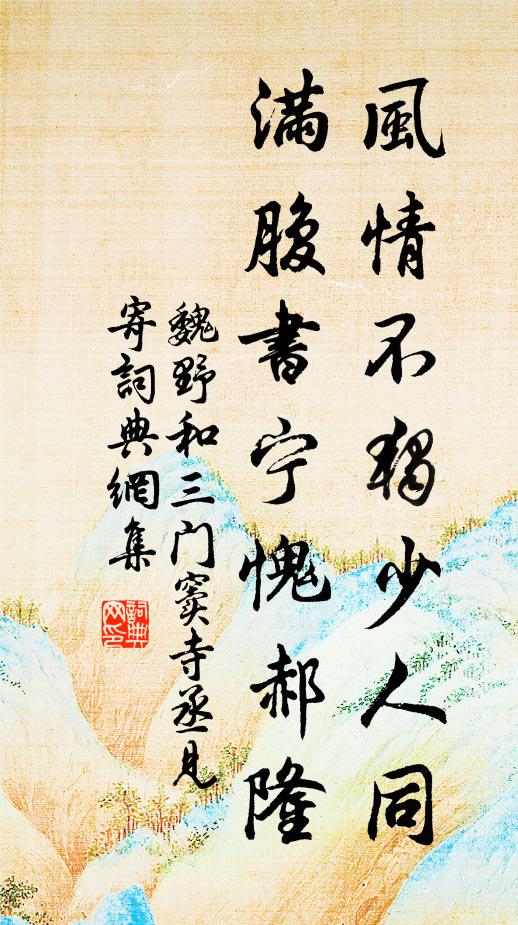 風情不獨少人同
滿腹書宁愧郝隆
魏野和三门竇寺丞見
寄詞典網集
詞典
网印